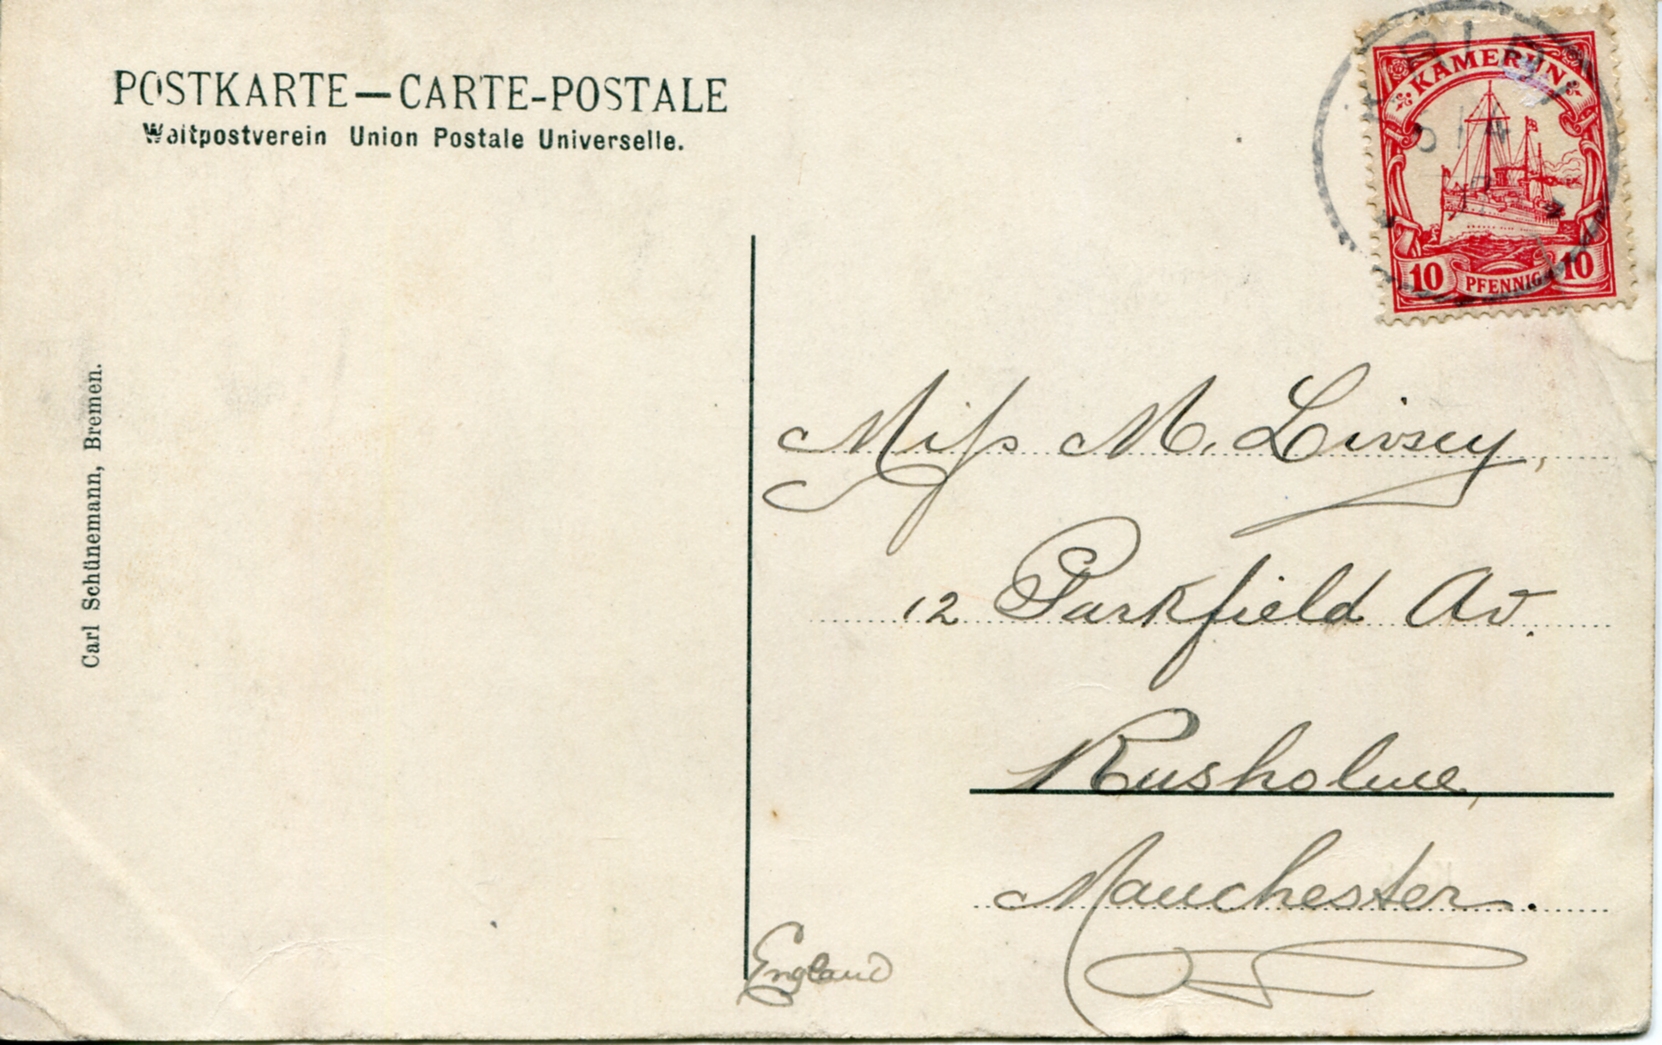 POSTKARTE—CARTE-POSTALE
Weltpostverein Union Postale Universelle.
KAMERUN
10 PFENNIG 10
Carl Schünemann, Bremen.
Miss M. Livsey,
12 Parkfield Av.
Rusholme,
Manchester.
England